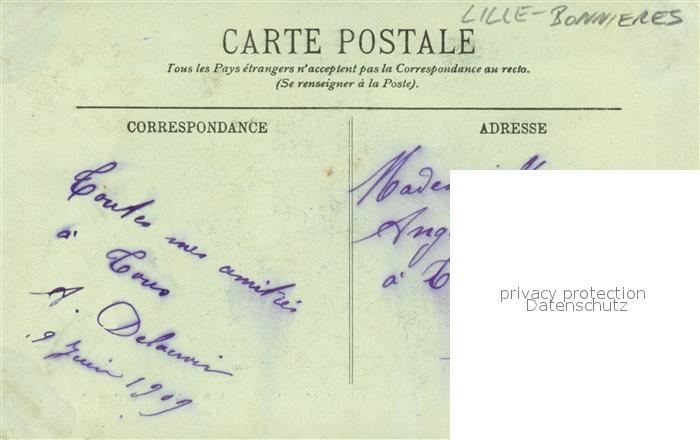 LILLE-BONNIERES
CARTE POSTALE
Tous les Pays étrangers n'acceptent pas la Correspondance au recto.
(Se renseigner à la Poste).
CORRESPONDANCE
ADRESSE
Toutes mes amitiés
à Tous
A. Delacroix
9 Juin 1909
Ang
à
privacy protection
Datenschutz